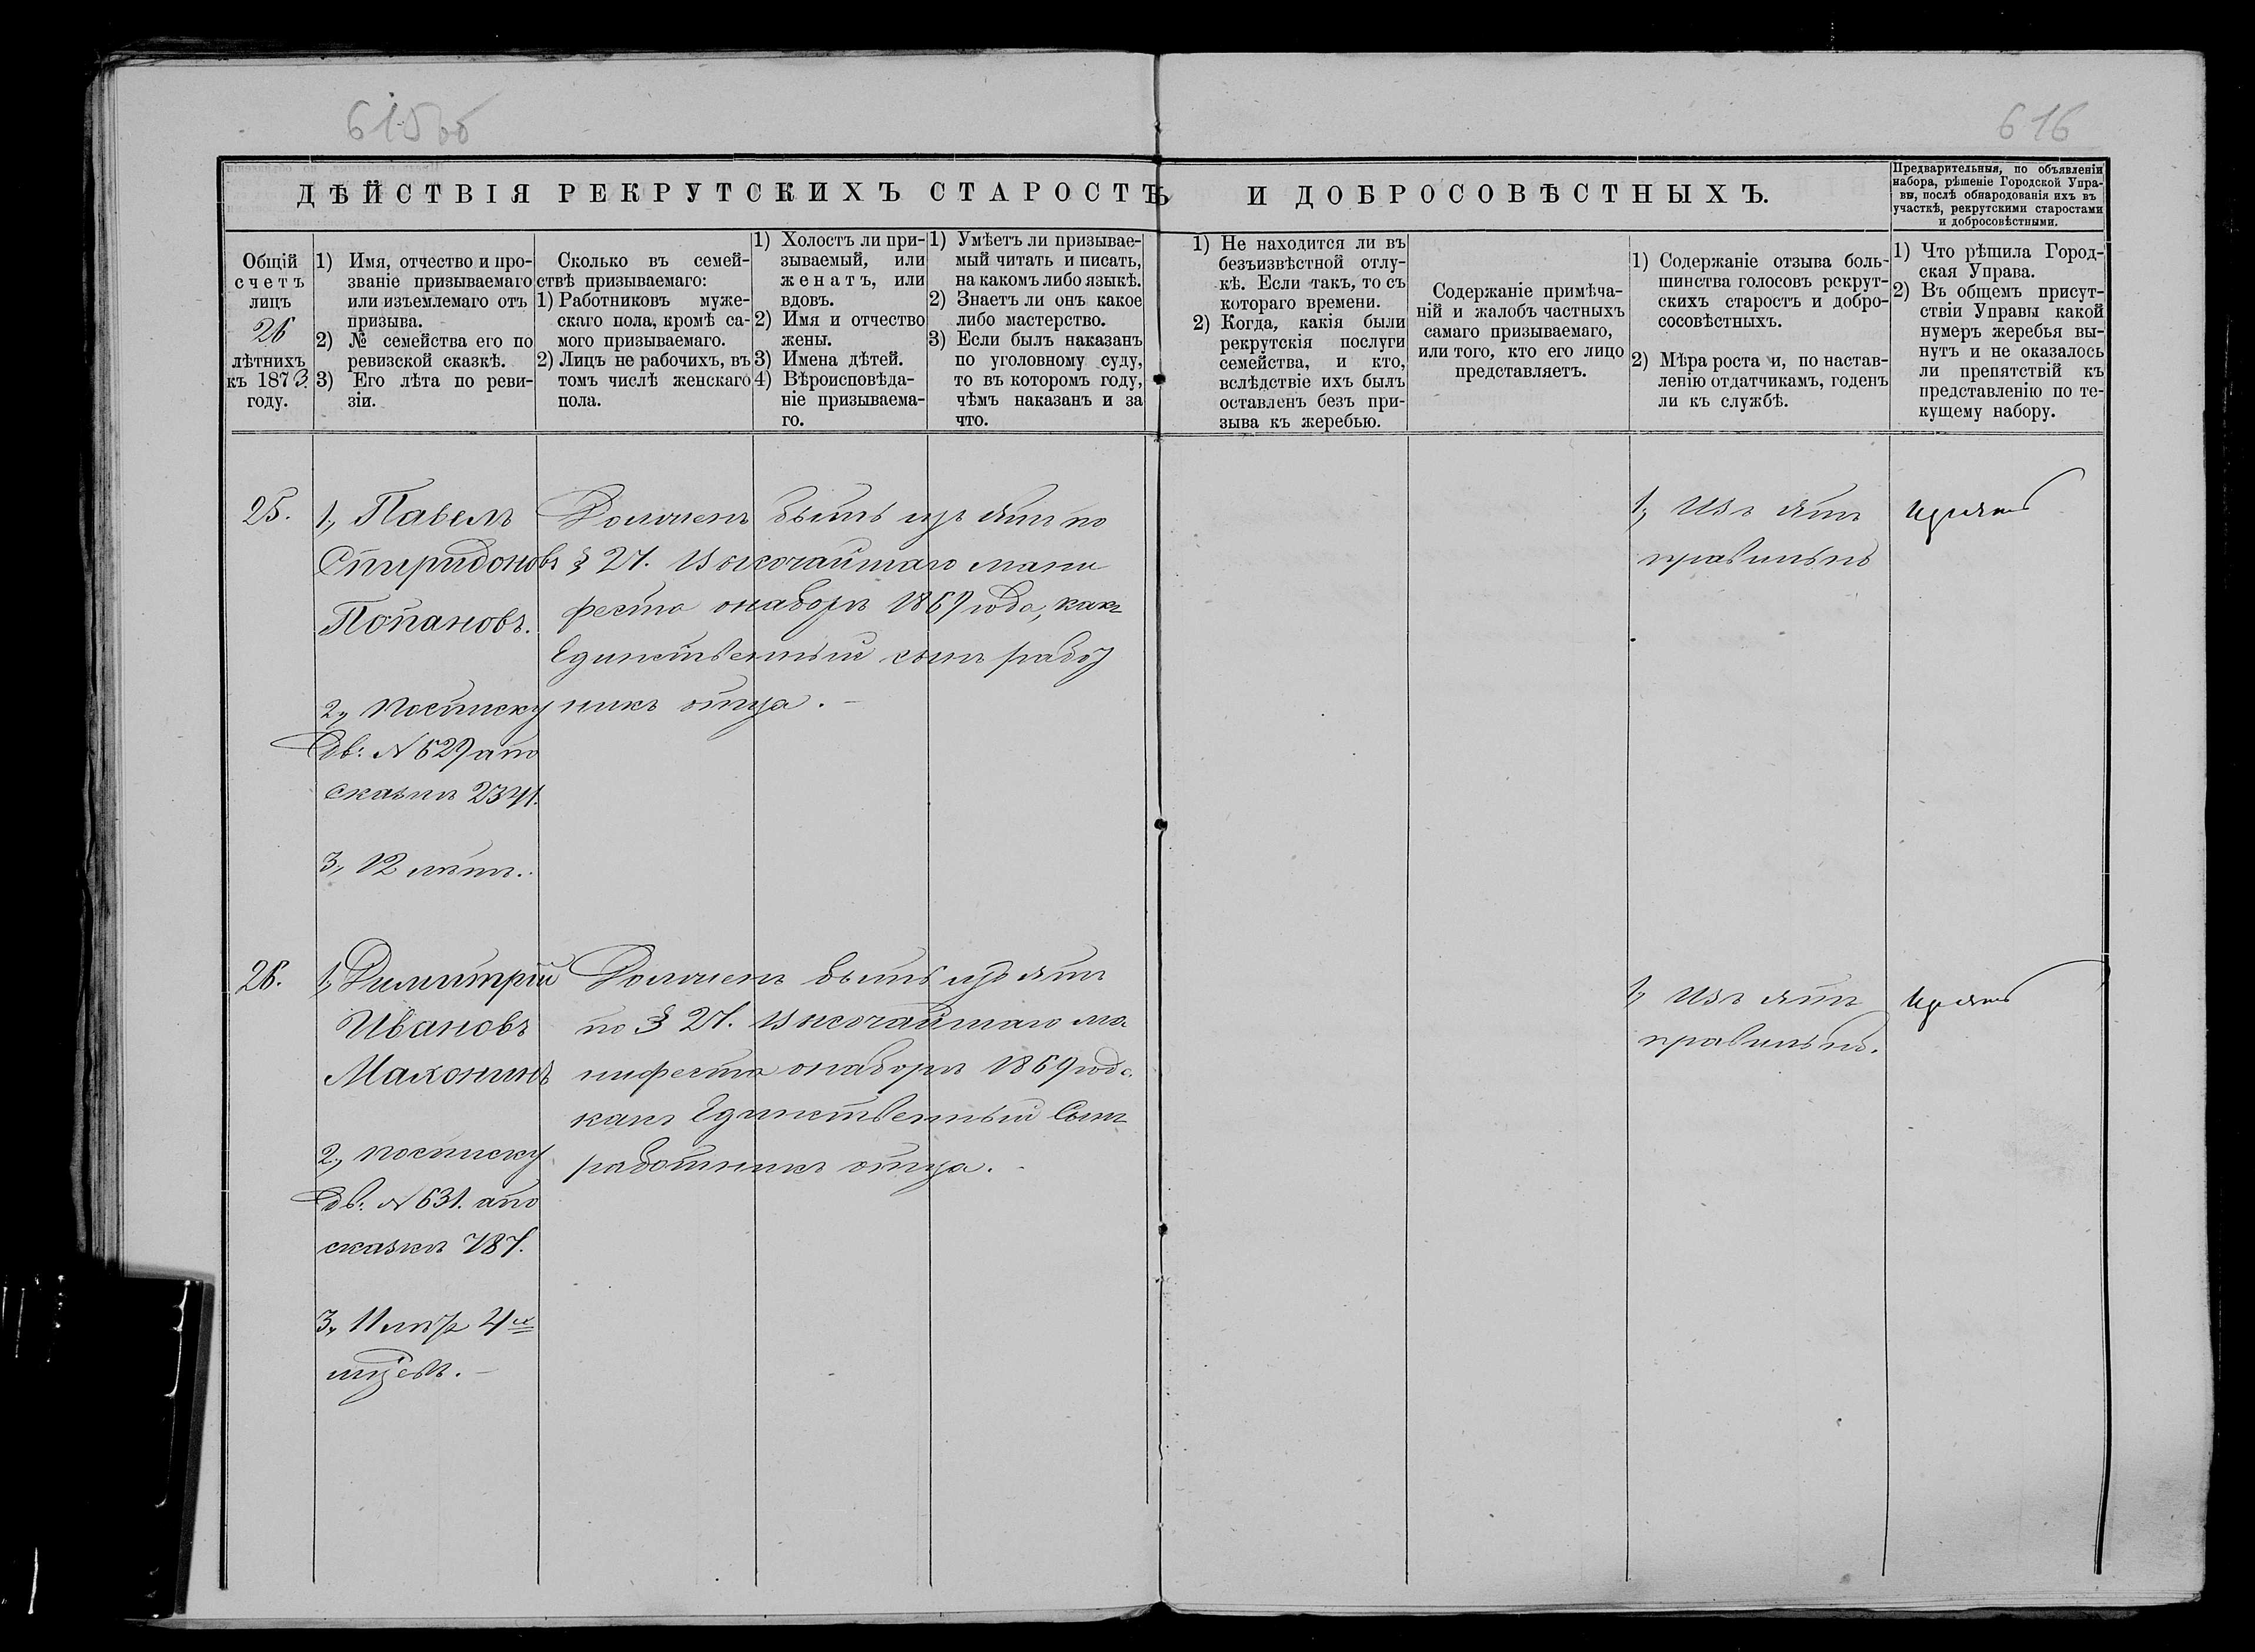 615об
616
ДѢЙСТВІЯ РЕКРУТСКИХЪ СТАРОСТЪ И ДОБРОСОВѢСТНЫХЪ.
Предварительныя, по объявленіи
набора, рѣшеніе Городской Упра-
вы, послѣ обнародованія ихъ въ
участкѣ, рекрутскими старостами
и добросовѣстными.
Общій
счетъ
лицъ
26
лѣтнихъ
къ 1873.
году.
1) Имя, отчество и про-
званіе призываемаго
или изъемлемаго отъ
призыва.
2) № семейства его по
ревизской сказкѣ.
3) Его лѣта по реви-
зіи.
Сколько въ семей-
ствѣ призываемаго:
1) Работниковъ муже-
скаго пола, кромѣ са-
мого призываемаго.
2) Лицъ не рабочихъ, въ
томъ числѣ женскаго
пола.
1) Холостъ ли при-
зываемый, или
женатъ, или
вдовъ.
2) Имя и отчество
жены.
3) Имена дѣтей.
4) Вѣроисповѣда-
ніе призываема-
го.
1) Умѣетъ ли призывае-
мый читать и писать,
на какомъ либо языкѣ.
2) Знаетъ ли онъ какое
либо мастерство.
3) Если былъ наказанъ
по уголовному суду,
то въ которомъ году,
чѣмъ наказанъ и за
что.
1) Не находится ли въ
безъизвѣстной отлу-
кѣ. Если такъ, то съ
котораго времени.
2) Когда, какія были
рекрутскія послуги
семейства, и кто,
вслѣдствіе ихъ былъ
оставленъ безъ при-
зыва къ жеребью.
Содержаніе примѣча-
ній и жалобъ частныхъ
самаго призываемаго,
или того, кто его лицо
представляетъ.
1) Содержаніе отзыва боль-
шинства голосовъ рекрут-
скихъ старостъ и добро-
сосовѣстныхъ.
2) Мѣра роста и, по настав-
ленію отдатчикамъ, годенъ
ли къ службѣ.
1) Что рѣшила Город-
ская Управа.
2) Въ общемъ присут-
ствіи Управы какой
нумеръ жеребья вы-
нутъ и не оказалось
ли препятствій къ
представленію по те-
кущему набору.
25.
1, Павелъ
Спиридоновъ
Попановъ.
2, по списку
дв: № 629 а по
сказкѣ 2341.
3, 12 лѣтъ.
Долженъ быть изъятъ по
§ 27. Высочайшаго мани
феста о наборѣ 1869 года, какъ
Единственный сынъ работ
никъ отца.
1, Изъятъ
правильнѣ
Изъятъ
26.
1, Димитрій
Ивановъ
Махонинъ
2, по списку
дв: № 631. а по
сказкѣ 787.
3, 11 лѣтъ 4х
мцевъ.
Долженъ быть изъятъ
по § 27. Высочайшаго ма
нифеста о наборѣ 1869 года
какъ Единственный Сынъ
работникъ отца.
1, Изъятъ
правильнѣ.
Изъятъ